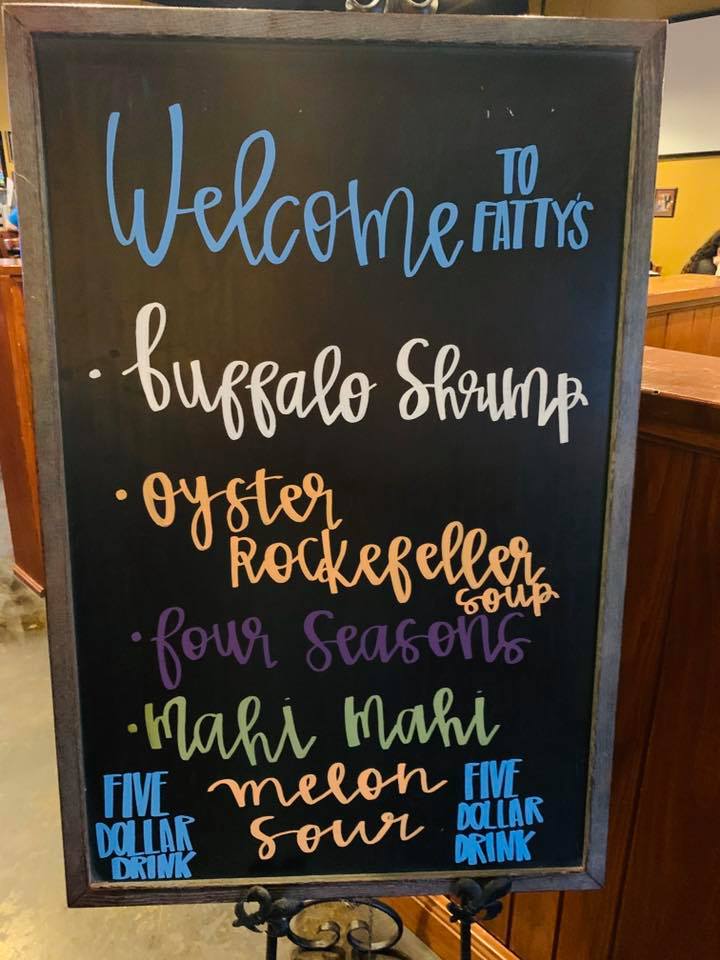 Welcome TO FATTY'S
· buffalo Shrimp
· oyster
Rockefeller
soup
· four Seasons
· Mahi Mahi
FIVE DOLLAR DRINK
melon
sour
FIVE DOLLAR DRINK